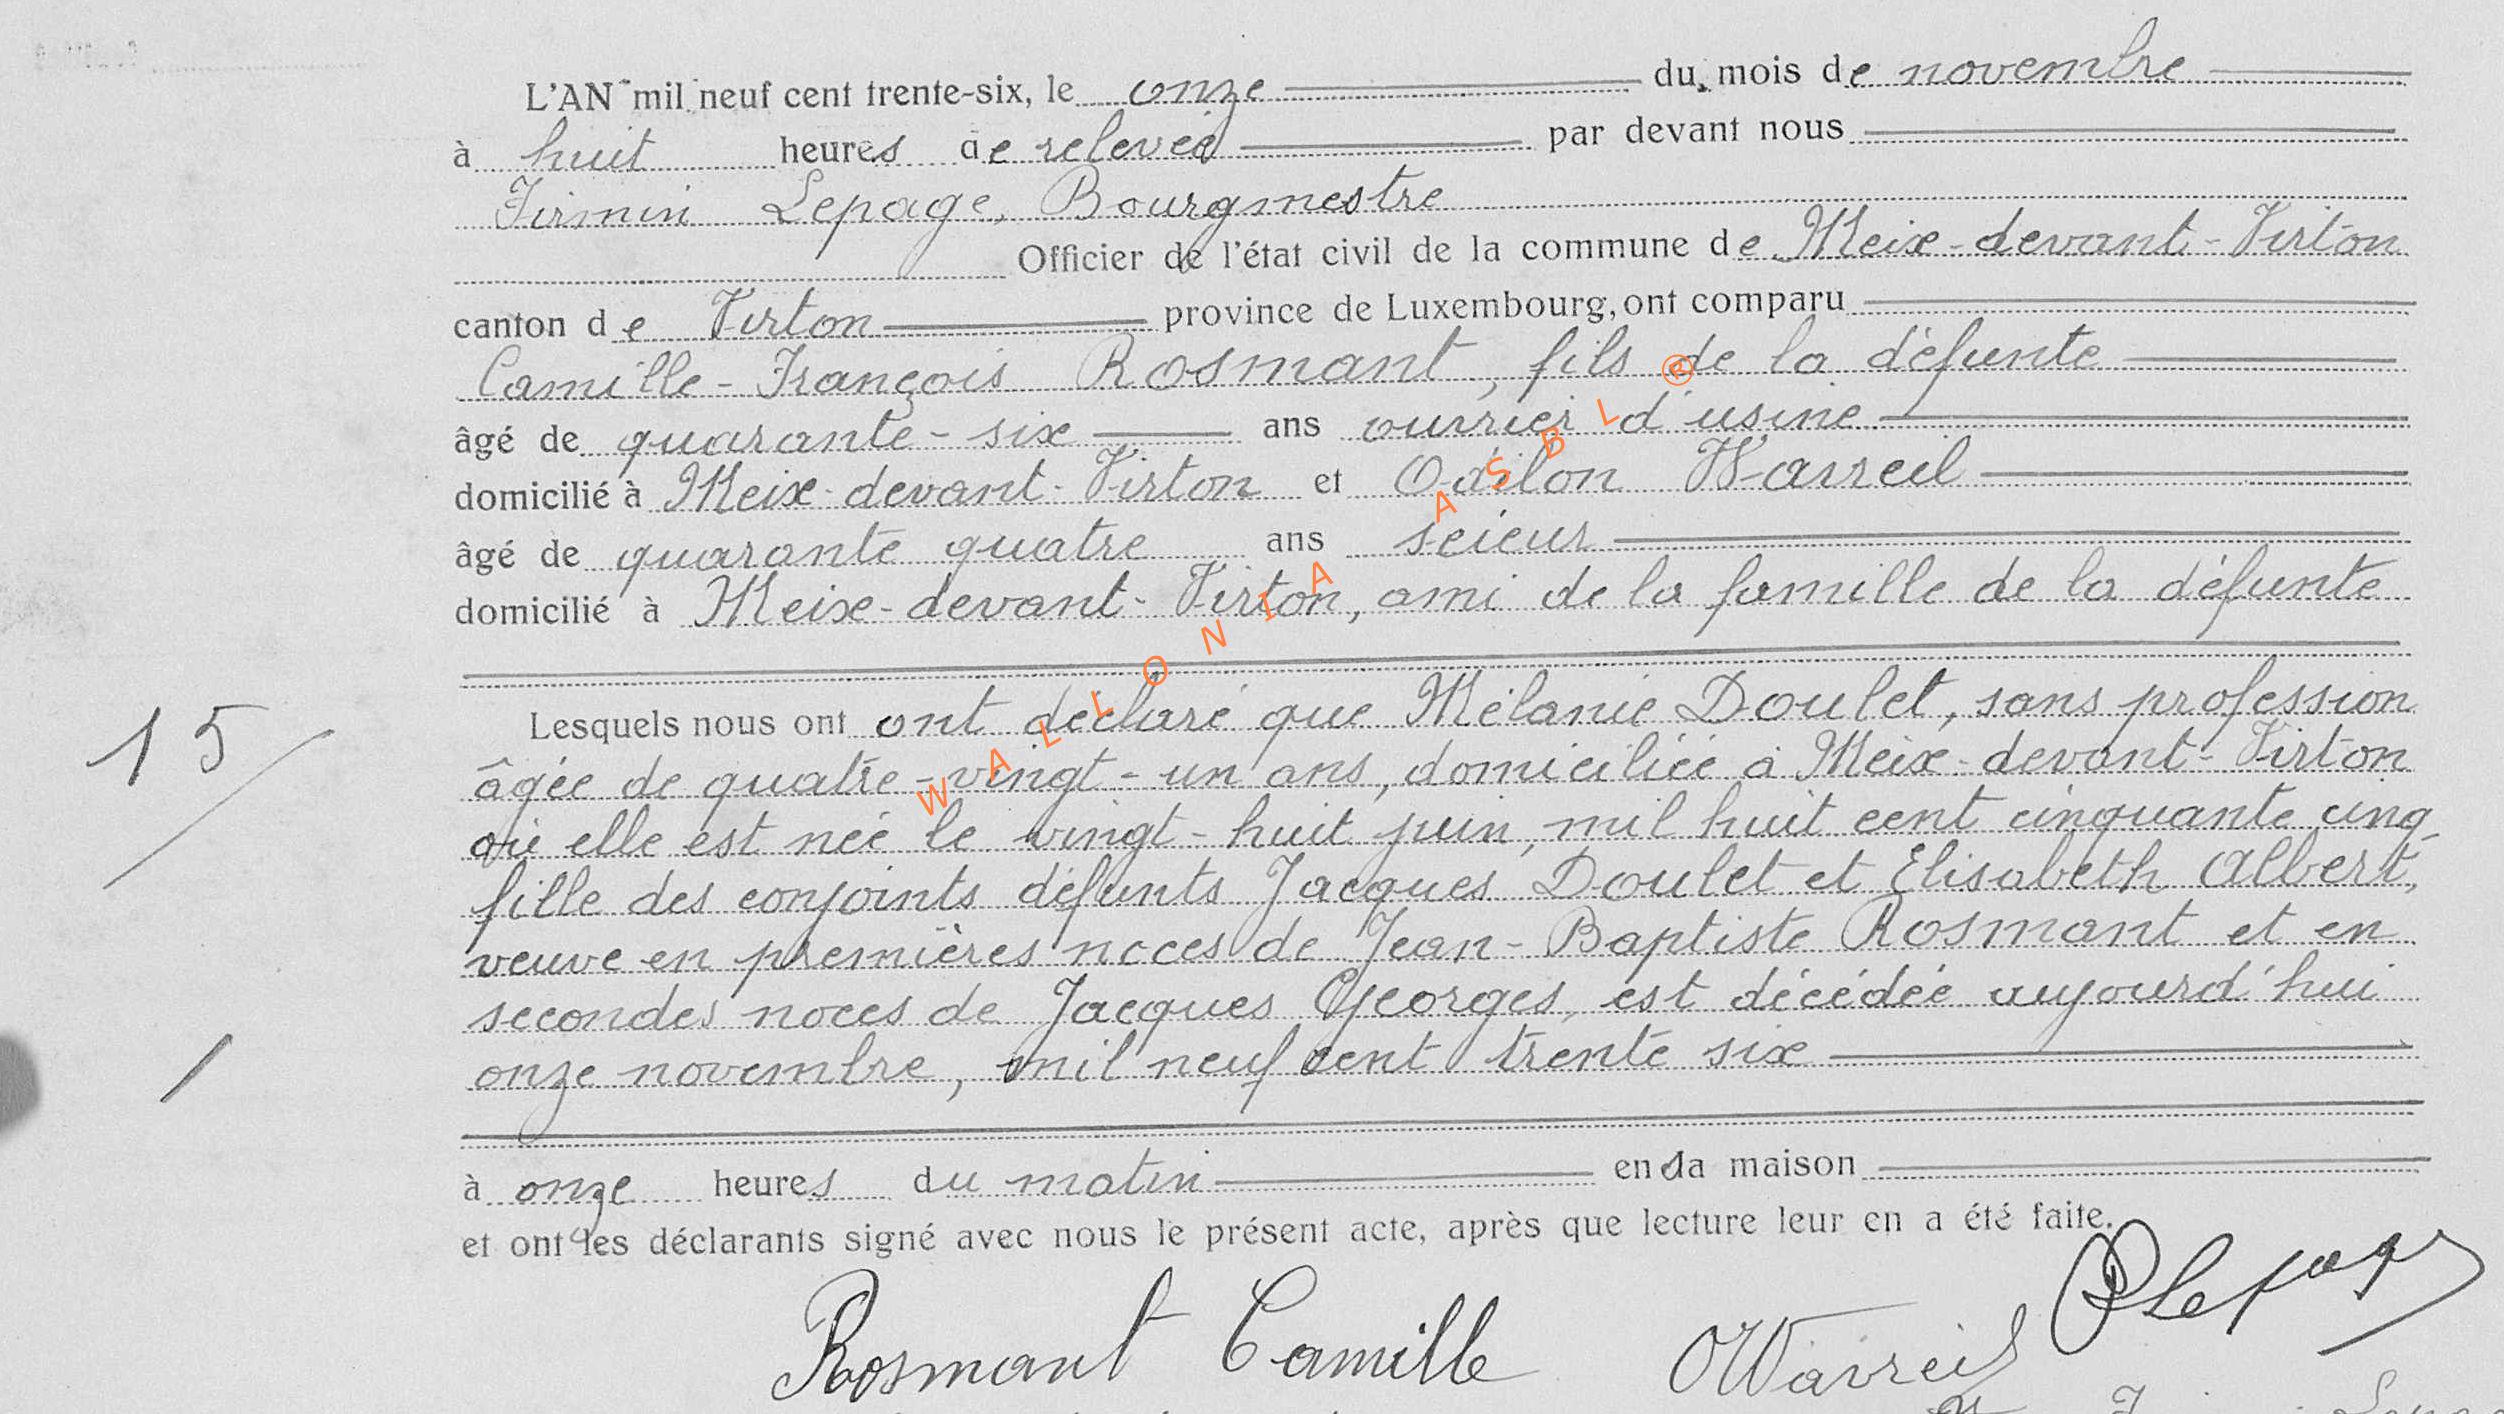 L'AN mil neuf cent trente-six, le onze du mois de novembre
à huit heures de relevée par devant nous
Firmin Lepage, Bourgmestre
Officier de l'état civil de la commune de Meix-devant-Virton
canton de Virton province de Luxembourg, ont comparu
Camille-François Rosmant, fils de la défunte
âgé de quarante-six ans ouvrier d'usine
domicilié à Meix-devant-Virton et Odilon Warreil
âgé de quarante quatre ans scieur
domicilié à Meix-devant-Virton, ami de la famille de la défunte
Lesquels nous ont ont déclaré que Mélanie Doulet, sans profession
15
âgée de quatre-vingt-un ans, domiciliée à Meix-devant-Virton
où elle est née le vingt-huit juin, mil huit cent cinquante cinq
fille des conjoints défunts Jacques Doulet et Elisabeth Albert,
veuve en premières noces de Jean-Baptiste Rosmant et en
secondes noces de Jacques Georges, est décédée aujourd'hui
onze novembre, mil neuf cent trente six
à onze heures du matin en sa maison
et ont les déclarants signé avec nous le présent acte, après que lecture leur en a été faite.
Rosmant Camille OWarreil Lepage
WALLONIA ASBL ®